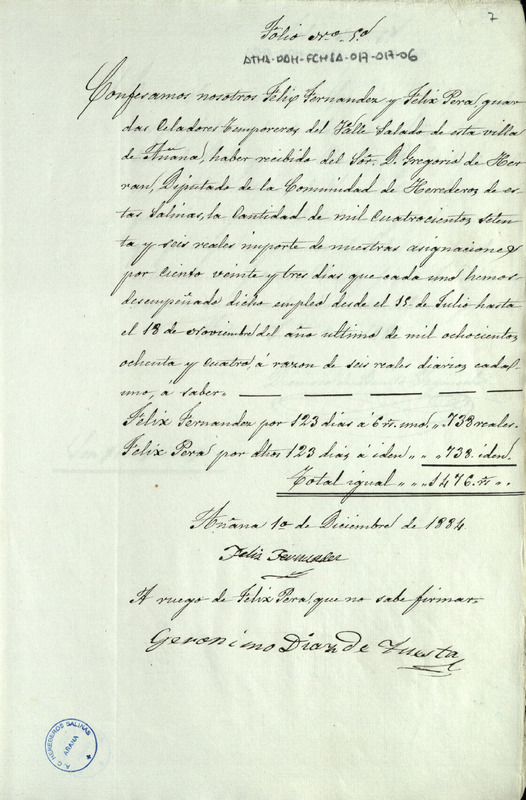 7
Folio Nro. 5º
ATHA-DAH-FCHSA-017-017-06
Confesamos nosotros Felix Fernandez y Felix Pera, guar
das Celadores temporeros del Valle Salado de esta villa
de Añana, haber recibido del Sor. D. Gregorio de Her
ran, Diputado de la Comunidad de Herederos de es
tas Salinas, la Cantidad de mil cuatrocientos seten
ta y seis reales importe de nuestras asignaciones
por ciento veinte y tres dias que cada uno hemos
desempeñado dicho empleo desde el 15 de Julio hasta
el 18 de Noviembre del año ultimo de mil ochocientos
ochenta y cuatro, á razon de seis reales diarios cada
uno, á saber
Felix Fernandez por 123 dias á 6 rs. uno " 738 reales.
Felix Pera por dhos 123 dias á iden " " 738. iden.
Total igual " " " 1476. rs ".
Añana 1º de Diciembre de 1884.
Felix Fernandez
A ruego de Felix Pera, que no sabe firmar
Geronimo Diaz de Tuesta
A.C. HEREDEROS SALINAS
AÑANA